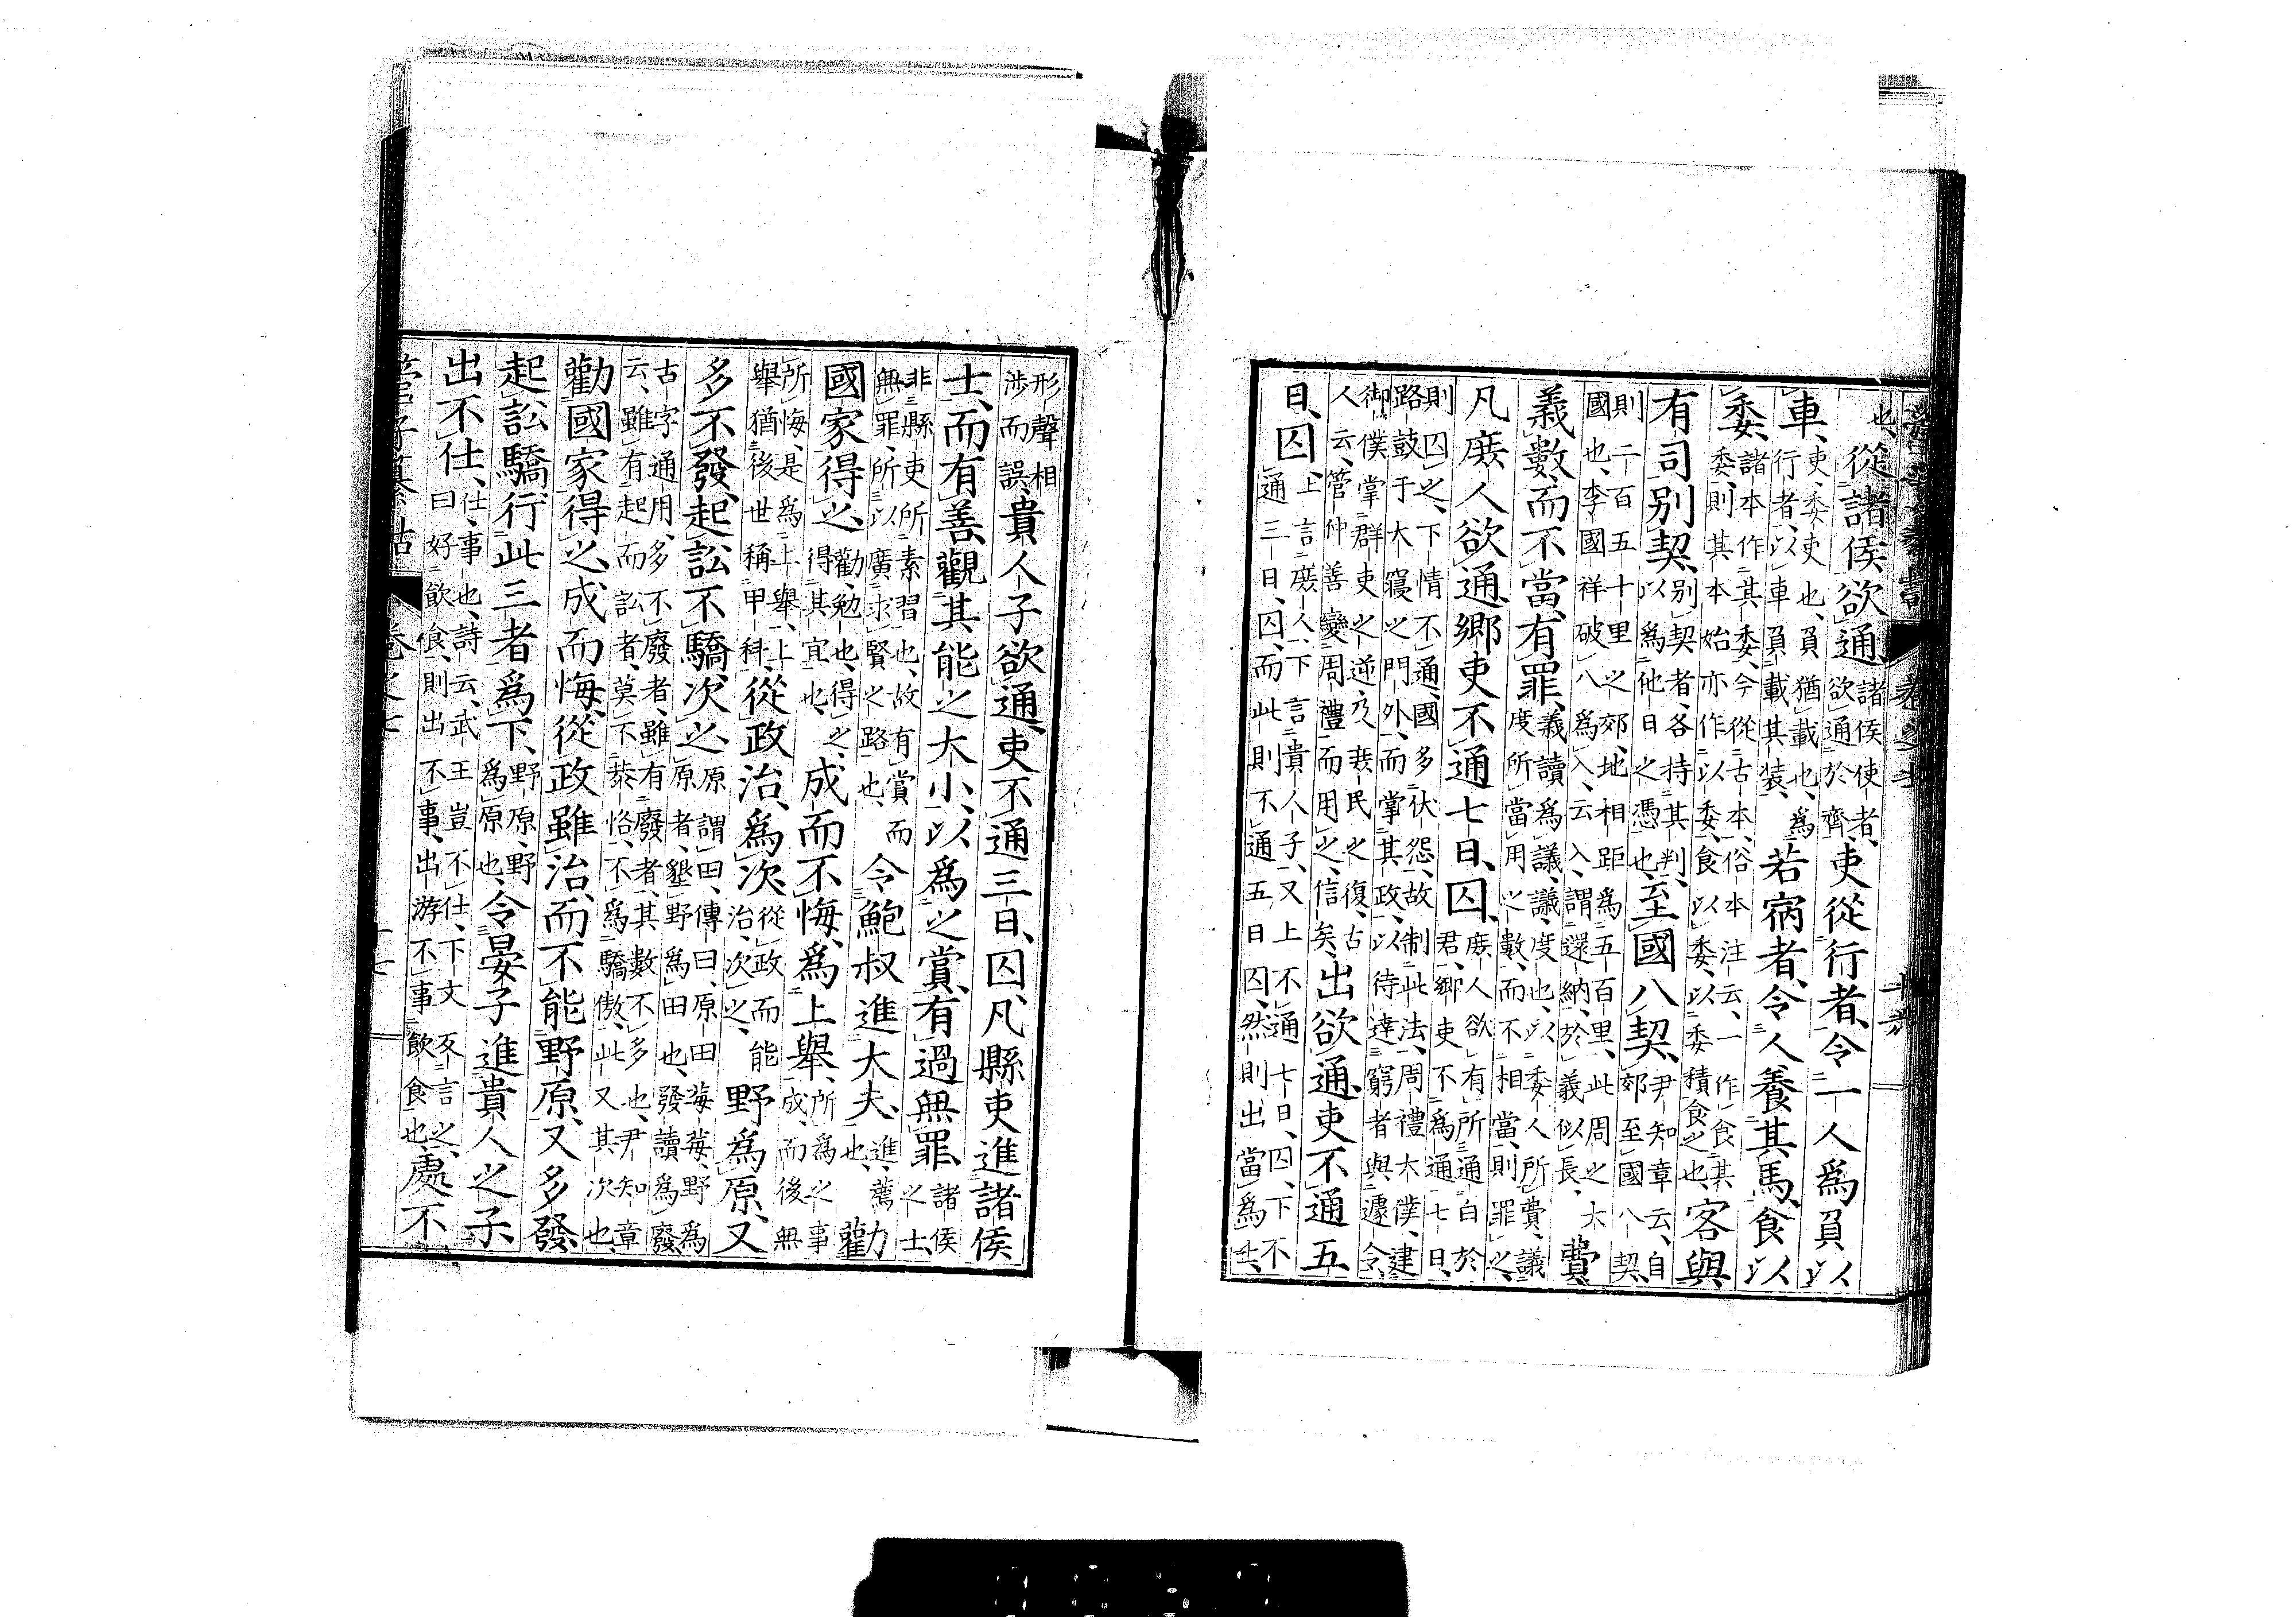 也、從諸侯欲通、諸侯使者、欲通於齊、吏從行者、令一人爲負以
車、吏、委吏也、負猶載也、爲行者、以車負載其裝、若宿者、令人養其馬、食以
委、諸本作其委、今從古本、俗本注云、一作食其委、則其本始亦作以委、食以委、以委積食之也、客與
有司別契、別契者、各持其判、以爲他日之憑也、至國八契、尹知章云、自郊至國八契、
則二百五十里之郊、地相距爲五百里、此周之大國也、李國祥破八爲入、云入、謂還納、於義似長、費
義數而不當、有罪、義讀爲議、議、度也、以委人所費、議度所當用之數、而不相當、則罪之、
凡庶人欲通、鄉吏不通七日、囚、庶人欲有所通白於君、鄉吏不爲通七日、
則囚之、下情不通、國多伏怨、故制此法、周禮大僕、建路鼓于大寢之門外、而掌其政、以待達窮者與遽令、
御僕掌群吏之逆乃庶民之復、古人云、管仲善變周禮而用之、信矣、出欲通、吏不通五
日、囚、上言庶人、下言貴人子、又上不通七日、囚、下不通三日、囚、而此則不通五日囚、然則出當爲士、
形聲相涉而誤、貴人子欲通、吏不通三日、囚、凡縣吏進諸侯
士、而有善、觀其能之大小、以爲之賞、有過無罪、諸侯之士、
非縣吏所素習也、故有賞而無罪、所以廣求賢之路也、令鮑叔進大夫、進、薦也、勸
國家得之、勸、勉也、得之、得其宜也、成而不悔、爲上舉、所爲之事成、而後無
所悔、是爲上舉、上舉猶後世稱甲科、從政治、爲次、從政而能治、次之、野爲原、又
多不發、起訟不驕、次之、原謂田、傳曰、原田莓莓、野爲原者、墾野爲田也、發讀爲廢、
古字通用、多不廢者、雖有廢者、其數不多也、尹知章云、雖有起而訟者、莫不恭恪、不爲驕傲、此又其次也、
勸國家得之、成而悔、從政雖治、而不能野原、又多發、
起訟驕、行此三者爲下、野原、野爲原也、令晏子進貴人之子、
出不仕、仕、事也、詩云、武王豈不仕、下文反言之、曰好飲食、則出不事、出游不事飲食也、處不
管子纂詁 卷之七 十七